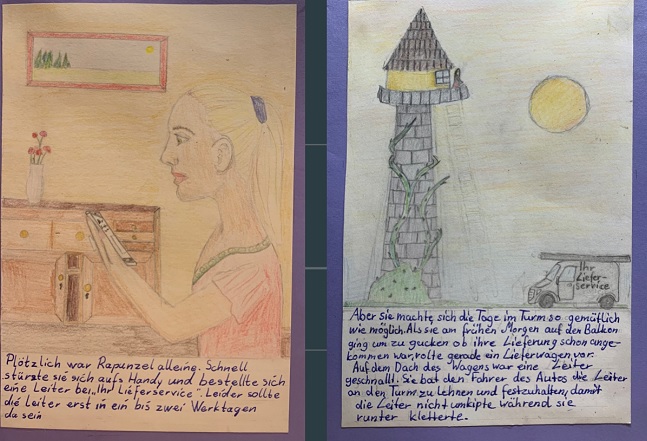 Plötzlich war Rapunzel alleine. Schnell
stürzte sie sich aufs Handy und bestellte sich
eine Leiter bei „Ihr Lieferservice". Leider sollte
die Leiter erst in ein bis zwei Werktagen
da sein
Ihr
Liefer-
service
Aber sie machte sich die Tage im Turm so gemütlich
wie möglich. Als sie am frühen Morgen auf den Balkon
ging um zu gucken ob ihre Lieferung schon ange-
kommen war, rolte gerade ein Lieferwagen vor.
Auf dem Dach des Wagens war eine Leiter
geschnallt. Sie bat den Fahrer des Autos die Leiter
an den Turm zu lehnen und festzuhalten, damit
die Leiter nicht umkipte während sie
runter kletterte.